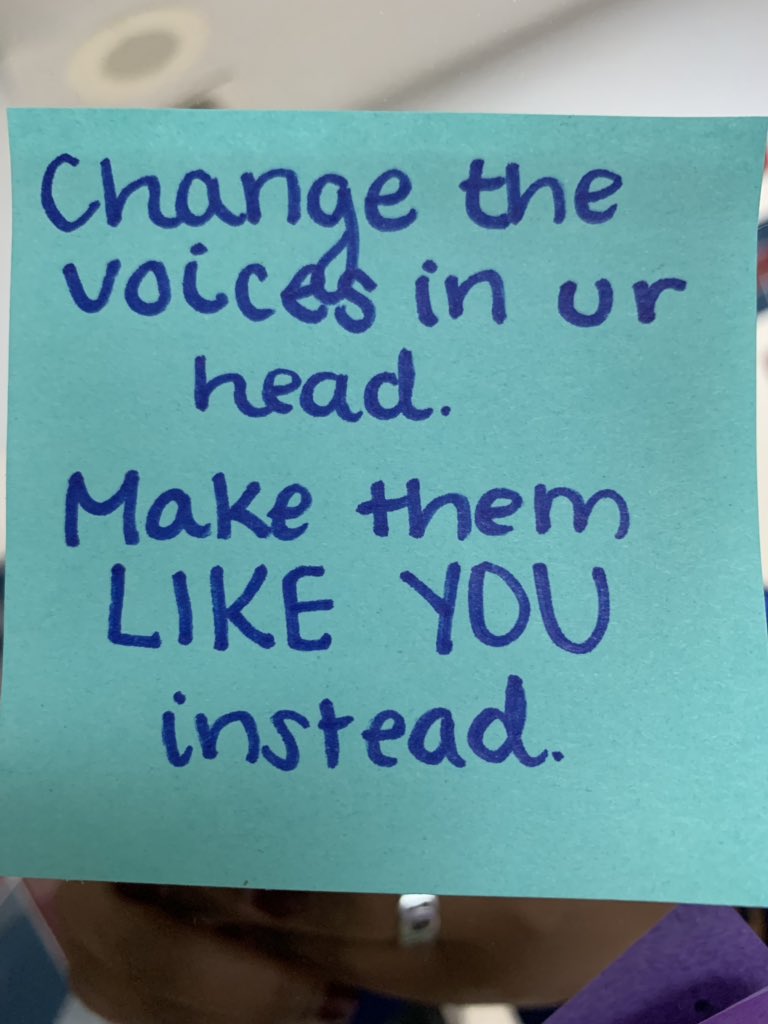 Change the
voices in ur
head.
Make them
LIKE YOU
instead.